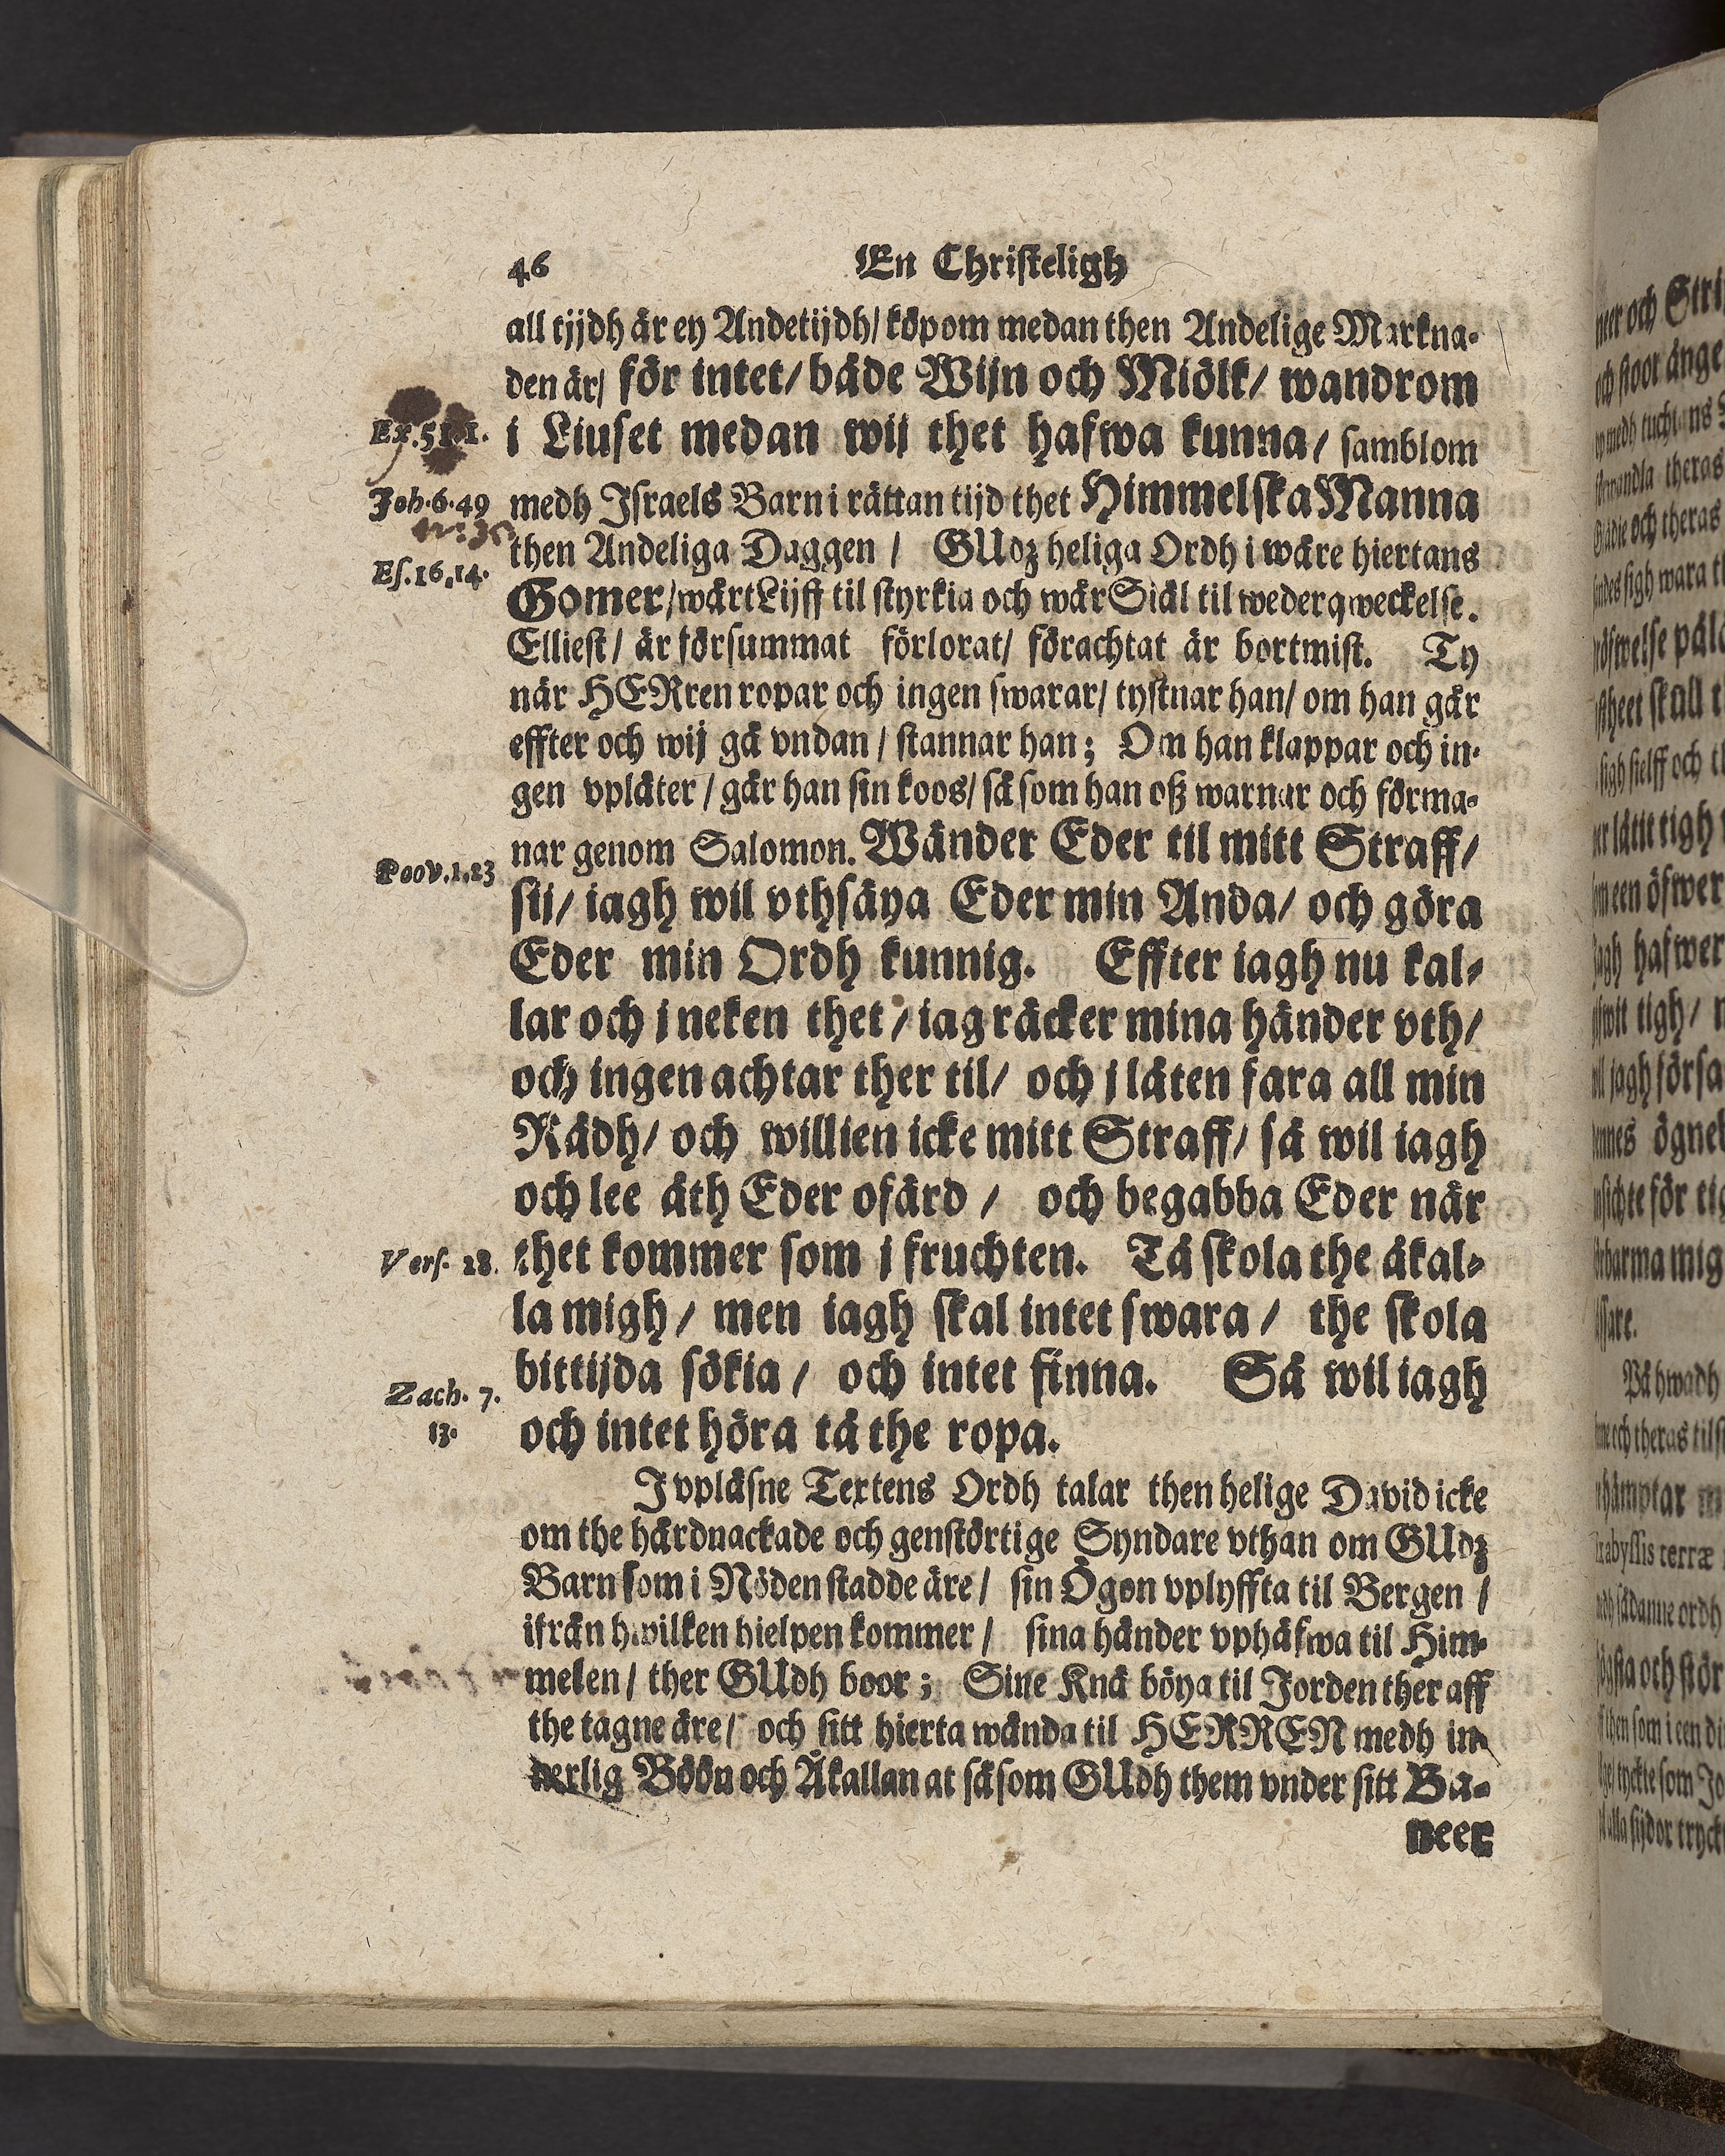 46 En Christeligh
all tijdh är ey Andetijdh/ köpom medan then Andelige Markna-
den är/ för intet/ både Wijn och Miölk/ wandrom
Joh. 6. 49
i Liuset medan wij thet hafwa kunna/ samblom
medh Israels Barn i rättan tijd thet Himmelska Manna
Es. 16. 14.
then Andeliga Daggen / GUdz heliga Ordh i wåre hiertans
Gomer/ wårt Lijff til styrkia och wår Siäl til wederqweckelse.
Elliest/ är försummat förlorat/ förachtat är bortmist. Ty
när HERren ropar och ingen swarar/ tystnar han/ om han går
effter och wij gå vndan / stannar han; Om han klappar och in-
gen vplåter / går han sin koos/ såsom han oß warnar och förma-
Poov. 1. 23
nar genom Salomon. Wänder Eder til mitt Straff/
sij/ iagh wil vthsäya Eder min Anda/ och göra
Eder min Ordh kunnig. Effter iagh nu kal-
lar och j neken thet / iag räcker mina händer vth/
och ingen achtar ther til/ och j låten fara all min
Rådh/ och willien icke mitt Straff/ så wil iagh
och lee åth Eder ofärd / och begabba Eder när
Vers. 28.
thet kommer som j fruchten. Tå skola the åkal-
la migh / men iagh skal intet swara / the skola
Zach. 7.
13.
bittijda sökia / och intet finna. Så wil iagh
och intet höra tå the ropa.
J vpläsne Textens Ordh talar then helige David icke
om the hårdnackade och genstörtige Syndare vthan om GUdz
Barn som i Nöden stadde äre / sin Ögon vplyffta til Bergen /
ifrån hwilken hielpen kommer / sina händer vphäfwa til Him-
melen / ther GUdh boor ; Sine Knä böya til Jorden ther aff
the tagne äre / och sitt hierta wända til HERREN medh in-
derlig Böön och Åkallan at såsom GUdh them vnder sitt Ba-
neer